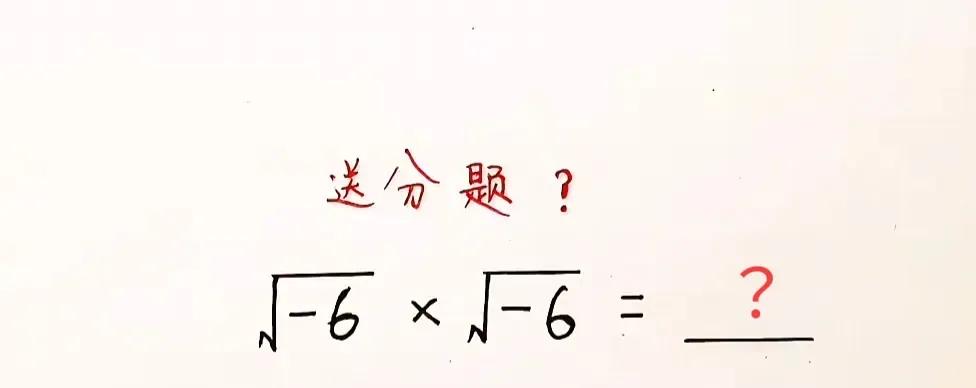 送分题?
√-6 × √-6 = ?